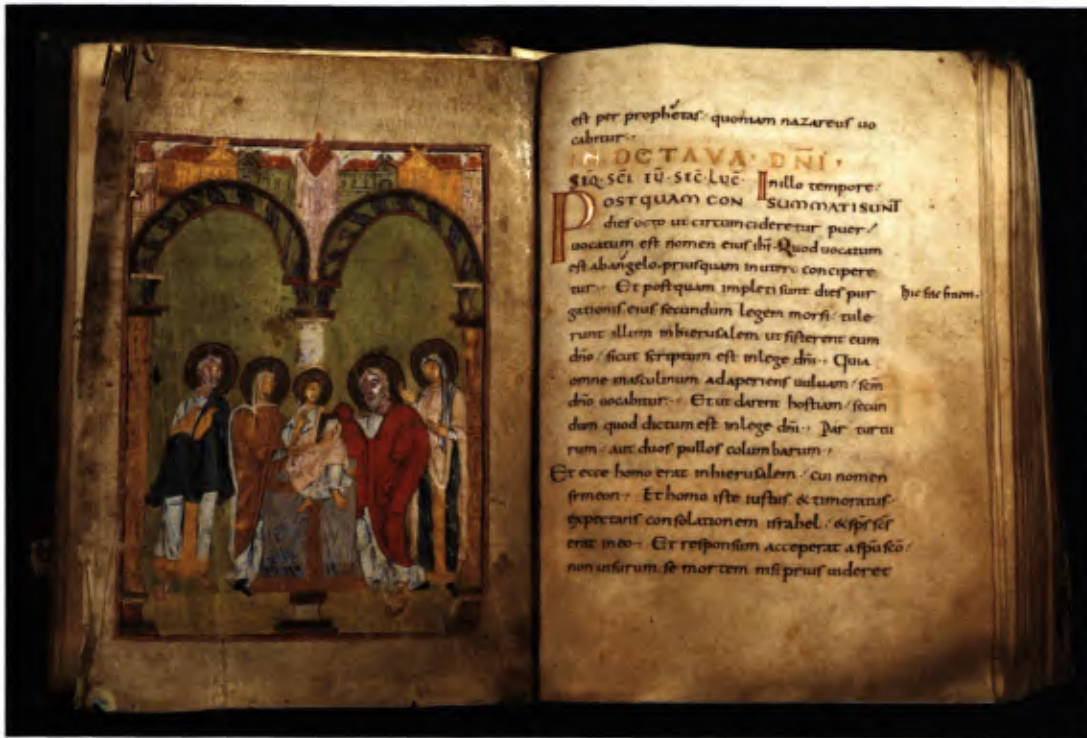 est per prophetas· quoniam nazareus uo
cabitur··
IN OCTAVA· DÑI·
SIQ·SCĪ IŪ·SIC̄·LUC̄· In illo tempore/
POSTQUAM CONSUMMATI SUNT
dies octo ut circumcideretur puer/
uocatum est nomen eius ihs̄· Quod uocatum
est abangelo· priusquam in utero concipere
tur·· Et postquam impleti sunt dies pur
gationis eius secundum legem mosi/ tule
runt illum inhierusalem ut sisterent eum
dn̄o/ sicut scriptum est inlege dn̄i·· Quia
omne masculinum adaperiens uuluam/ scm̄
dn̄o uocabitur·· Et ut darent hostiam/ secun
dum quod dictum est inlege dn̄i·· Par turtu
rum/ aut duos pullos columbarum··
Et ecce homo erat inhierusalem/ cui nomen
simeon·· Et homo iste iustus & timoratus·
expectans consolationem israhel/ & sps̄ scs̄
erat in eo·· Et responsum acceperat aspū scō/
non uisurum se mortem nisi prius uideret